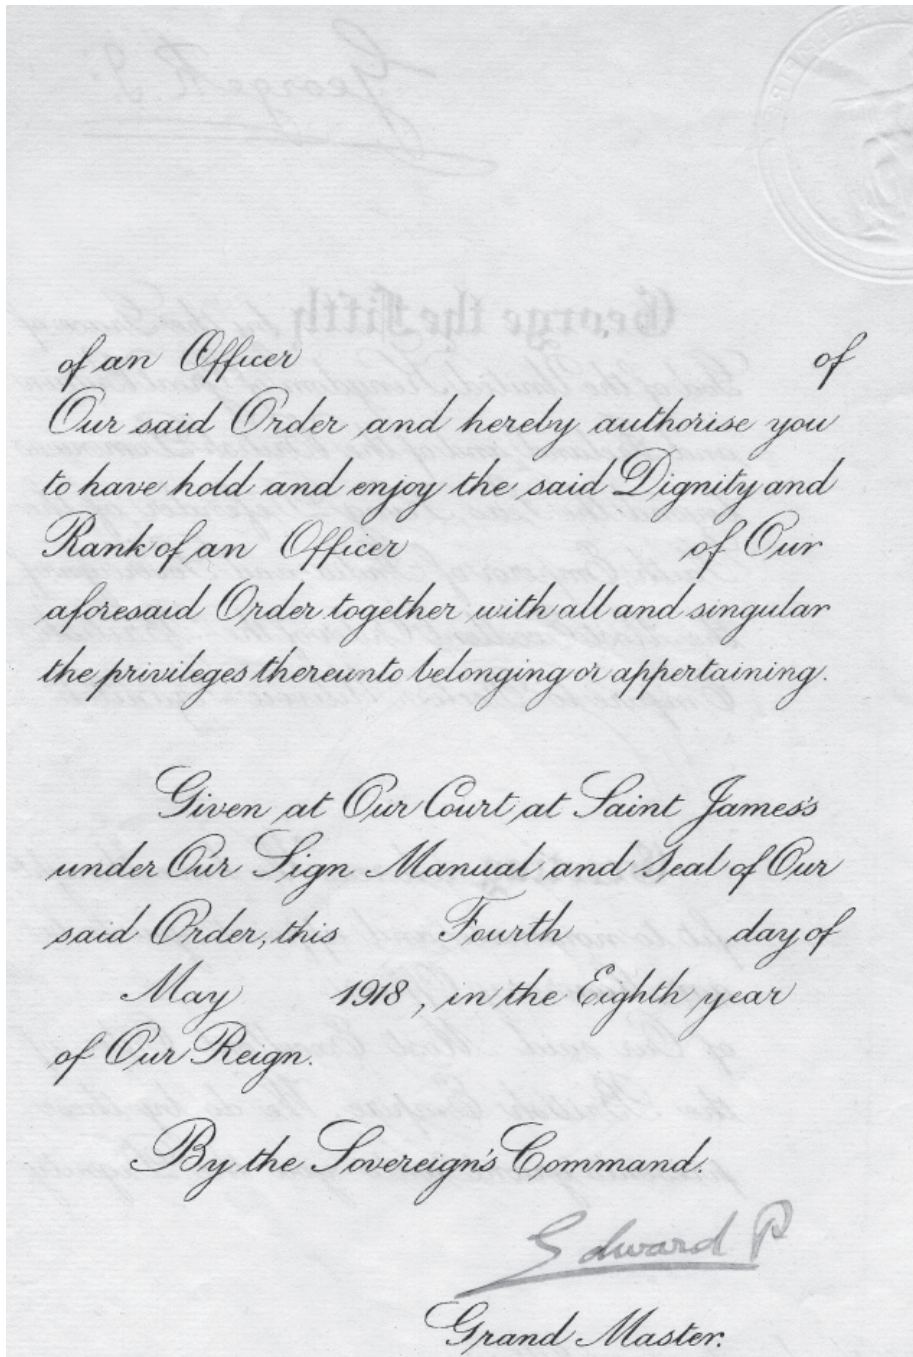 of an Officer of
Our said Order and hereby authorise you
to have hold and enjoy the said Dignity and
Rank of an Officer of Our
aforesaid Order together with all and singular
the privileges thereunto belonging or appertaining.
Given at Our Court at Saint James's
under Our Sign Manual and Seal of Our
said Order, this Fourth day of
May 1918, in the Eighth year
of Our Reign.
By the Sovereign's Command.
Edward P
Grand Master.